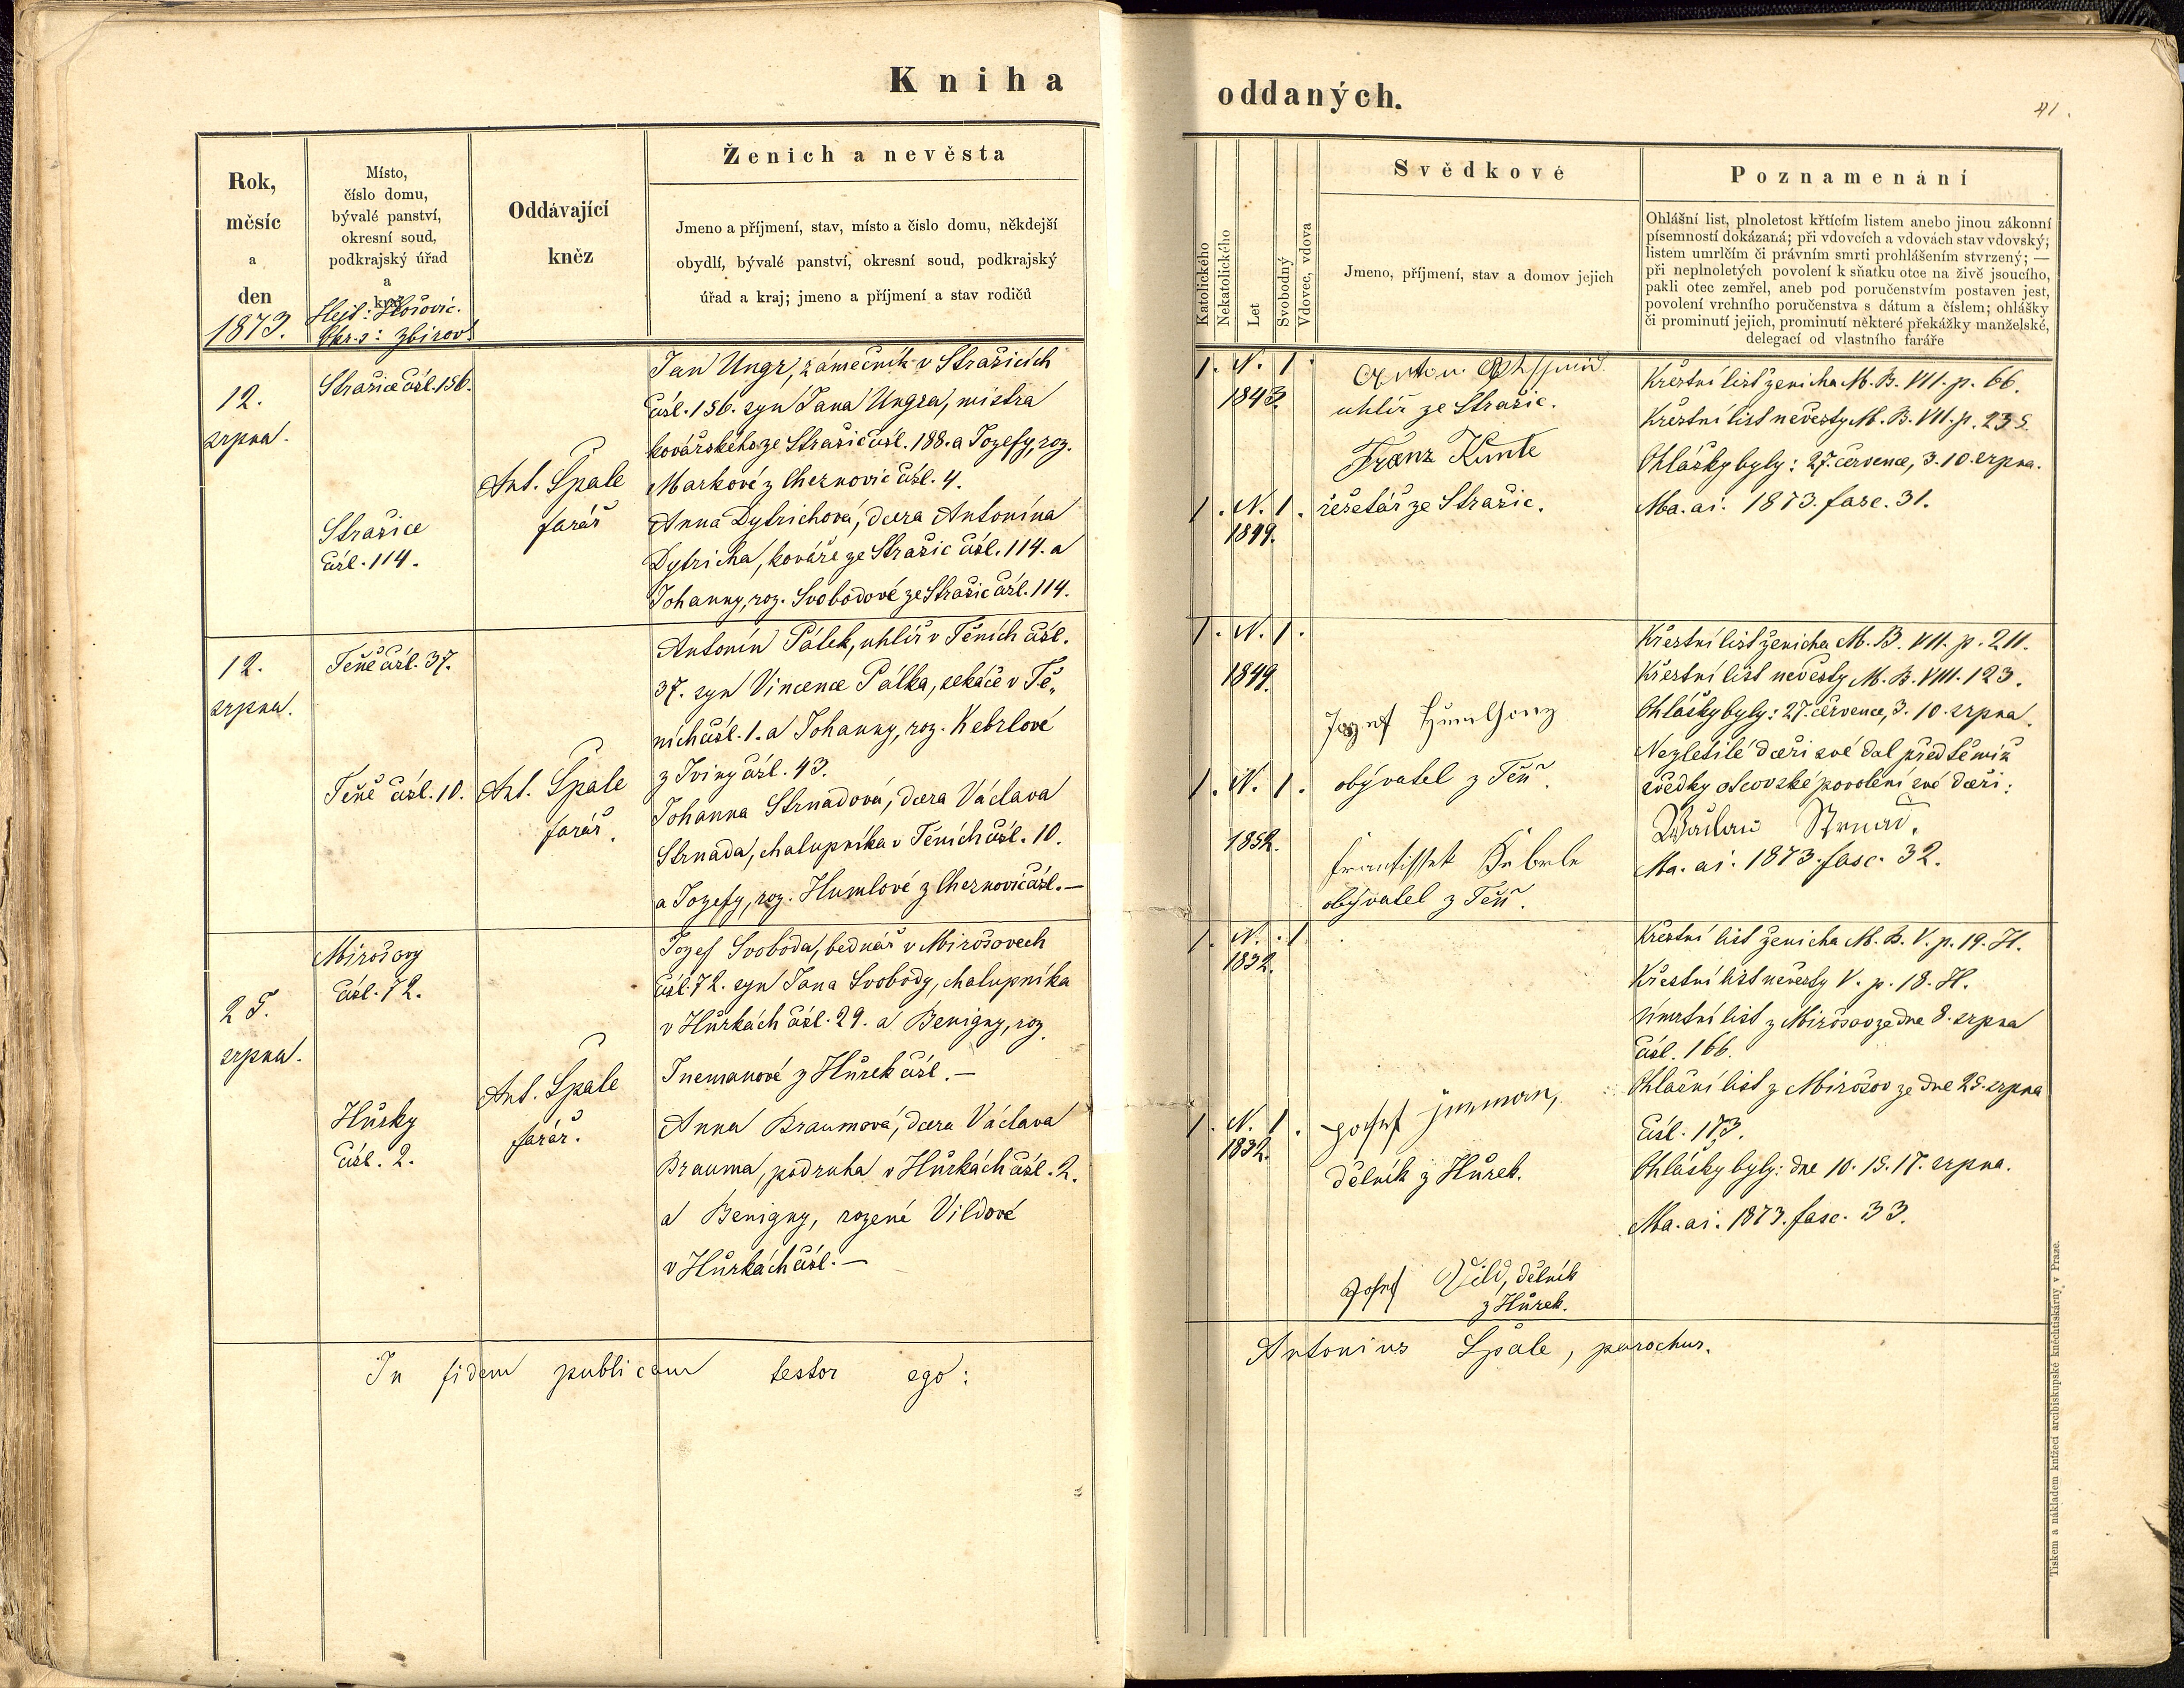 Kniha
oddaných.
41.
Rok,
měsíc
a
den
1873.
Místo,
číslo domu,
bývalé panství,
okresní soud,
podkrajský úřad
a
kraj
Hejt: Hořovic.
Okr. s: Zbirov
Oddávající
kněz
Ženich a nevěsta
Jmeno a příjmení, stav, místo a číslo domu, někdejší
obydlí, bývalé panství, okresní soud, podkrajský
úřad a kraj; jmeno a příjmení a stav rodičů
Katolického
Nekatolického
Let
Svobodný
Vdovec, vdova
Svědkové
Jmeno, příjmení, stav a domov jejich
Poznamenání
Ohlášní list, plnoletost křtícím listem anebo jinou zákonní
písemností dokázaná; při vdovcích a vdovách stav vdovský;
listem umrlčím či právním smrti prohlášením stvrzený; —
při neplnoletých povolení k sňatku otce na živě jsoucího,
pakli otec zemřel, aneb pod poručenstvím postaven jest,
povolení vrchního poručenstva s dátum a číslem; ohlášky
či prominutí jejich, prominutí některé překážky manželské,
delegací od vlastního faráře
12.
srpna.
Strašice čísl. 156.
Strašice
čísl. 114.
Ant. Špale
farář
Jan Ungr, zámečník v Strašicích
čísl. 156. syn Jana Ungra, mistra
kovářského ze Strašic čísl. 188. a Jozefy, roz.
Markové z Cheznovic čísl. 4.
Anna Dytrichová, dcera Antonína
Dytricha, kováře ze Strašic čísl. 114. a
Johanny, roz. Svobodové ze Strašic čísl. 114.
1. N. 1.
1843.
1. N. 1.
1849.
Anton
uhlíř ze Strašic.
Franz Kunte
řešetář ze Strašic.
Křestní list ženicha M. B. VII. p. 66.
Křestní list nevěsty M. B. VII. p. 235
Ohlášky byly: 27. července, 3. 10. srpna.
Ma. ai. 1873. fasc. 31.
12.
srpna.
Těně čísl. 37.
Těně čísl. 10.
Ant. Špale
farář.
Antonín Pátek, uhlíř v Těních čísl.
37. syn Vincence Pátka, sekáče v Tě„
ních čísl. 1. a Johanny, roz. Kebrlové
z Iviny čísl. 43.
Johanna Strnadová, dcera Václava
Strnada, chalupníka v Těních čísl. 10.
a Jozefy, roz. Humlové z Cheznovic čísl. —
1. N. 1.
1849.
1. N. 1.
1852.
Jozef
obývatel z Těň.
Frantissek Keberle
obývatel z Těň.
Křestní list ženicha M. B. VII. p. 211.
Křestní list nevěsty M. B. VIII. 123.
Ohlášky byly: 27. července, 3. 10. srpna.
Nezletilé dceři své dal před těmiž
svědky otcovské povolení své dceři:
Wáclaw Strnad.
Ma. ai. 1873. fasc. 32.
25.
srpna.
Mirošovy
čísl. 72.
Hůrky
čísl. 2.
Ant. Špale
farář.
Jozef Svoboda, bednář v Mirošovech
čísl. 72. syn Jana Svobody, chalupníka
v Hůrkách čísl. 29. a Benigny, roz.
Inemanové z Hůrek čísl. —
Anna Braumová, dcera Václava
Brauma, podruha v Hůrkách čísl. 2.
a Benigny, rozené Vildové
v Hůrkách čísl. —
1. N. 1
1832.
1. N. 1.
1832.
Josef Jneman,
dělník z Hůrek.
Josef Vild, dělník
z Hůrek.
Křestní list ženicha M. B. V. p. 19. H.
Křestní list nevěsty V. p. 18. H.
Úmrtní list z Mirošov ze dne 8. srpna
čísl. 166.
Ohlašní list z Mirošov ze dne 25. srpna
čísl. 173.
Ohlášky byly: dne 10. 15. 17. srpna.
Ma. ai. 1873. fasc. 33.
In fidem publicam testor ego:
Antonius Špale, parochus.
Tiskem a nákladem knížecí arcibiskupské knihtiskárny v Praze.